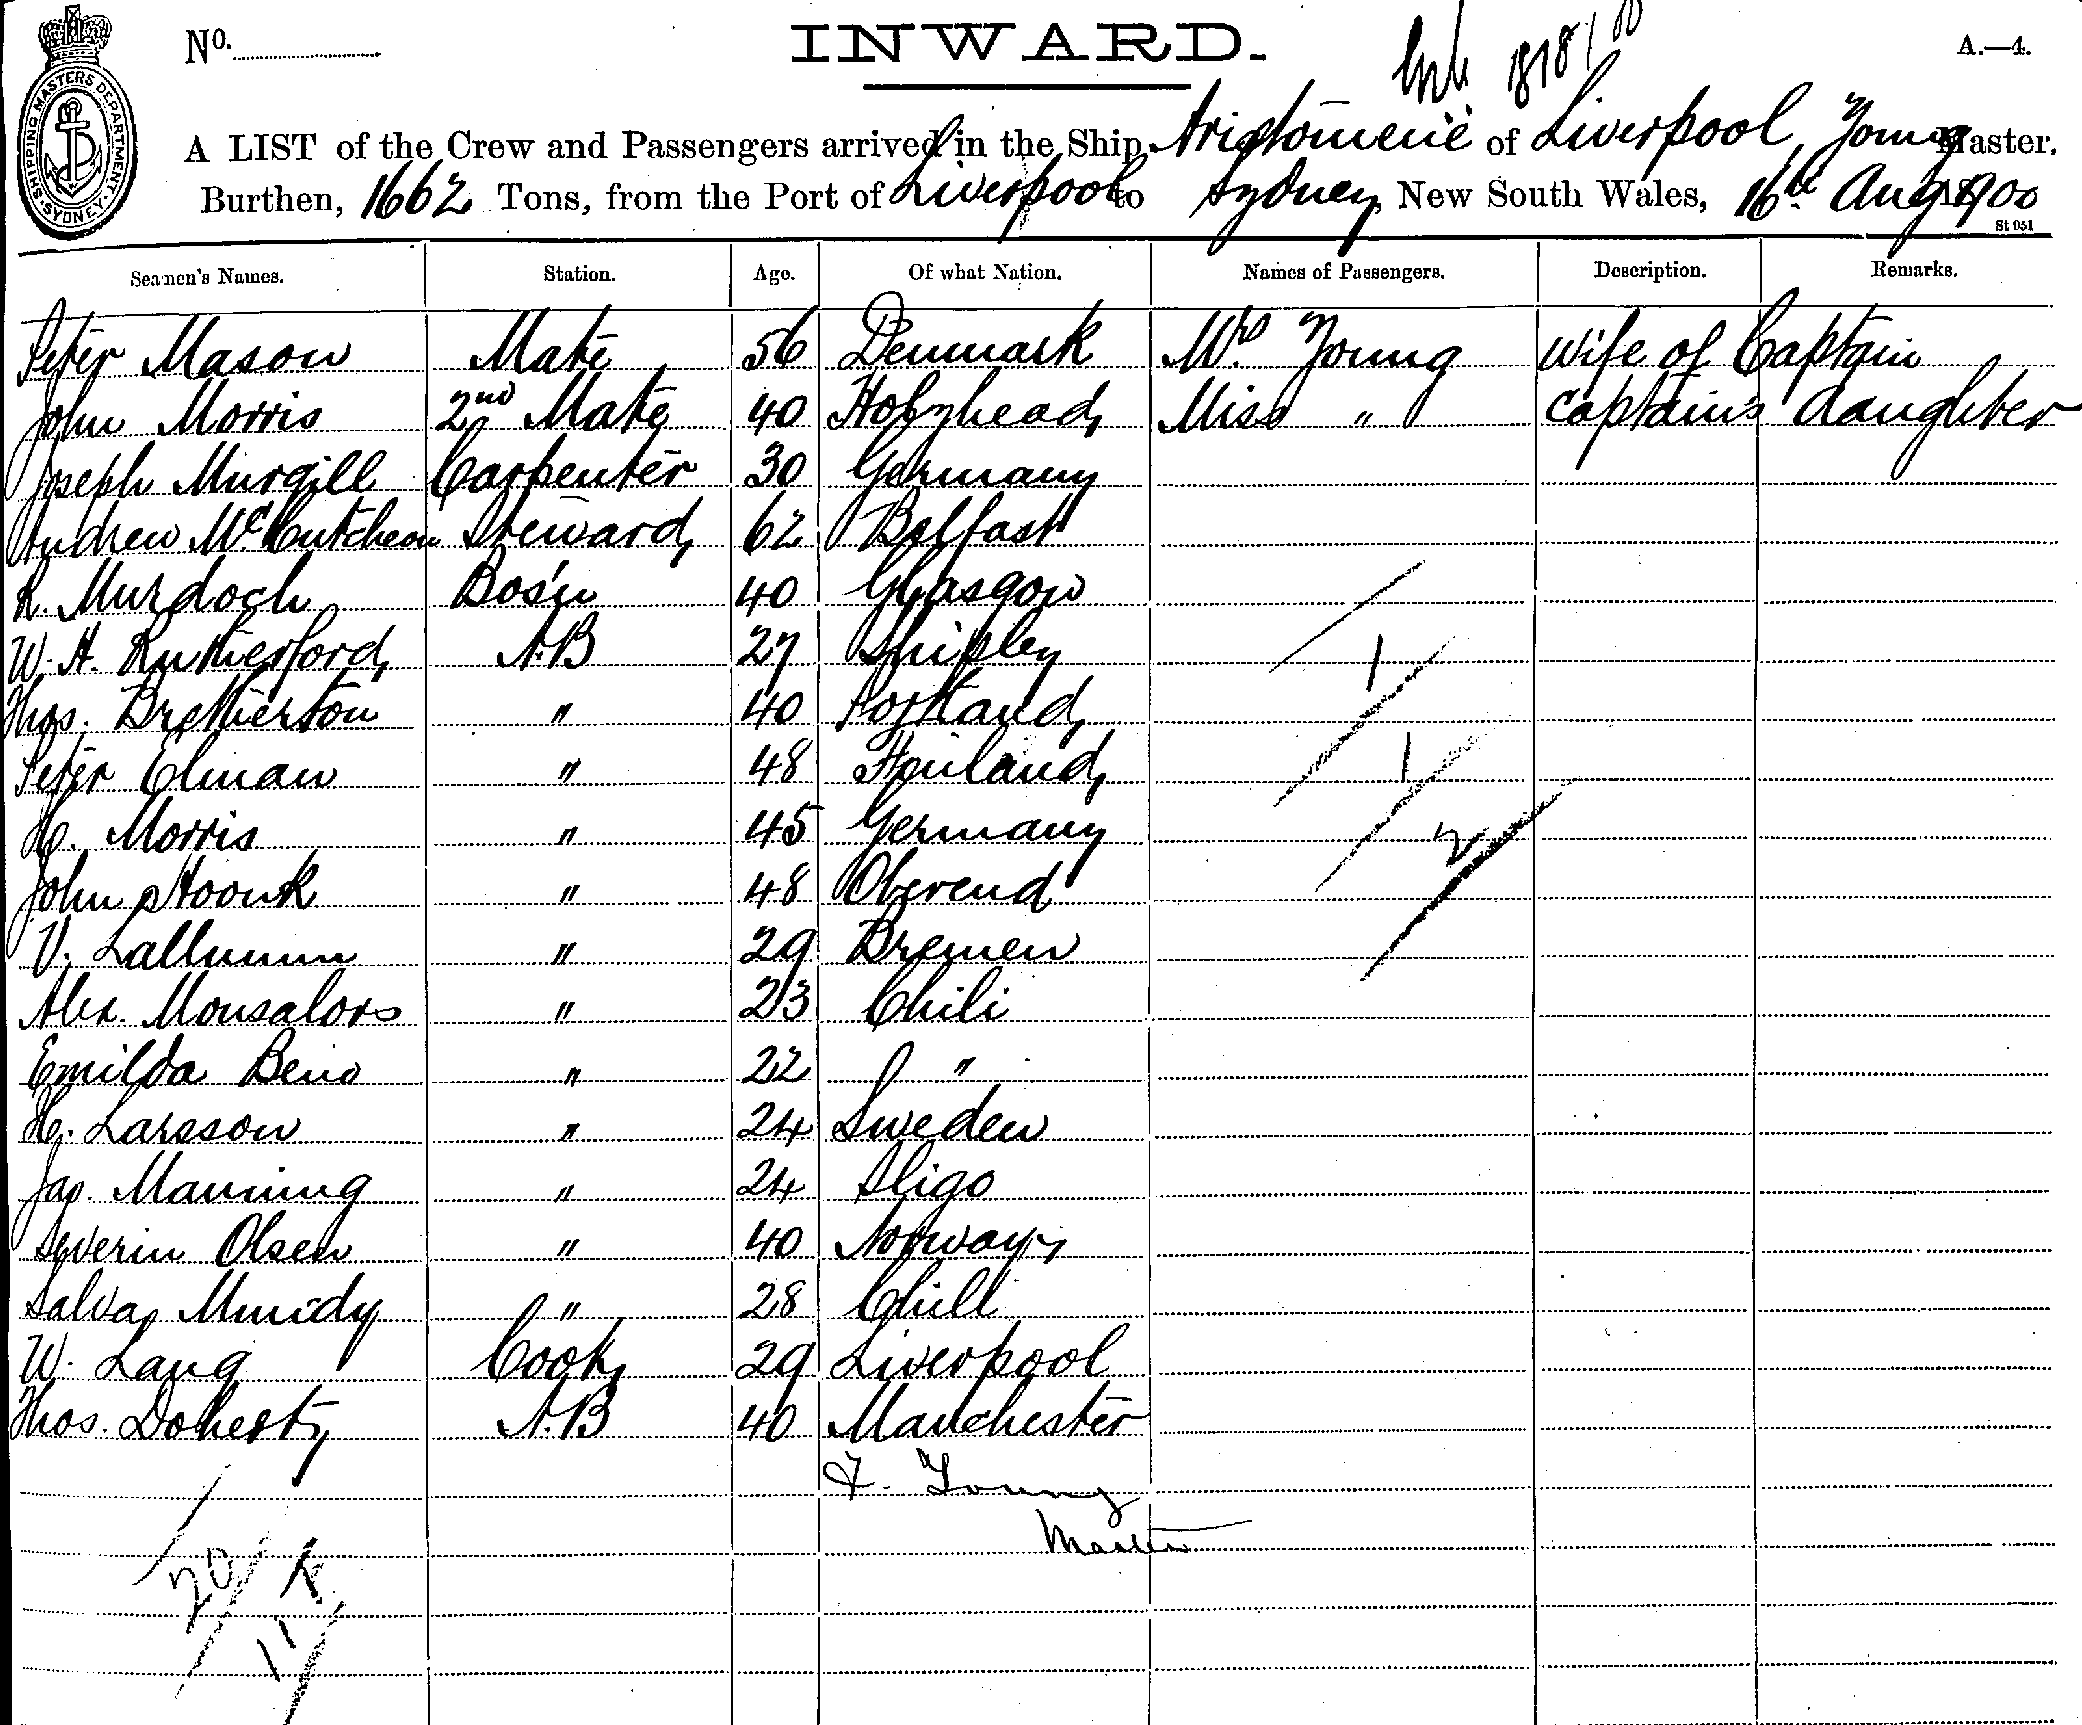 SHIPPING MASTERS DEPARTMENT. SYDNEY.
No.
INWARD.
A.—4.
A LIST of the Crew and Passengers arrived in the Ship Aristomene of Liverpool, Young Master.
Burthen, 1662 Tons, from the Port of Liverpool to Sydney, New South Wales, 16th Aug 1900
St 951
Seamen's Names. Station. Age. Of what Nation. Names of Passengers. Description. Remarks.
Peter Mason Mate 56 Denmark Mrs. Young wife of Captain
John Morris 2nd Mate 40 Holyhead Miss " Captain's daughter
Joseph Murgill Carpenter 30 Germany
Andrew McCutcheon Steward 62 Belfast
R. Murdoch Bos'n 40 Glasgow
W. H. Rutherford A.B 27 Shipley
Thos. Bretherton " 40 Portland
Peter Elman " 48 Finland
H. Morris " 45 Germany
John " 48
V. " 29 Bremen
Alex. Monsalors " 23 Chili
Emilda Beno " 22 "
H. Larsson " 24 Sweden
Jas. Manning " 24 Sligo
Severin Olsen " 40 Norway
Salva " 28 Chili
W. Lang Cook 29 Liverpool
Thos. Doherty A.B 40 Manchester
F. Young
Master
1
1
2
20
11